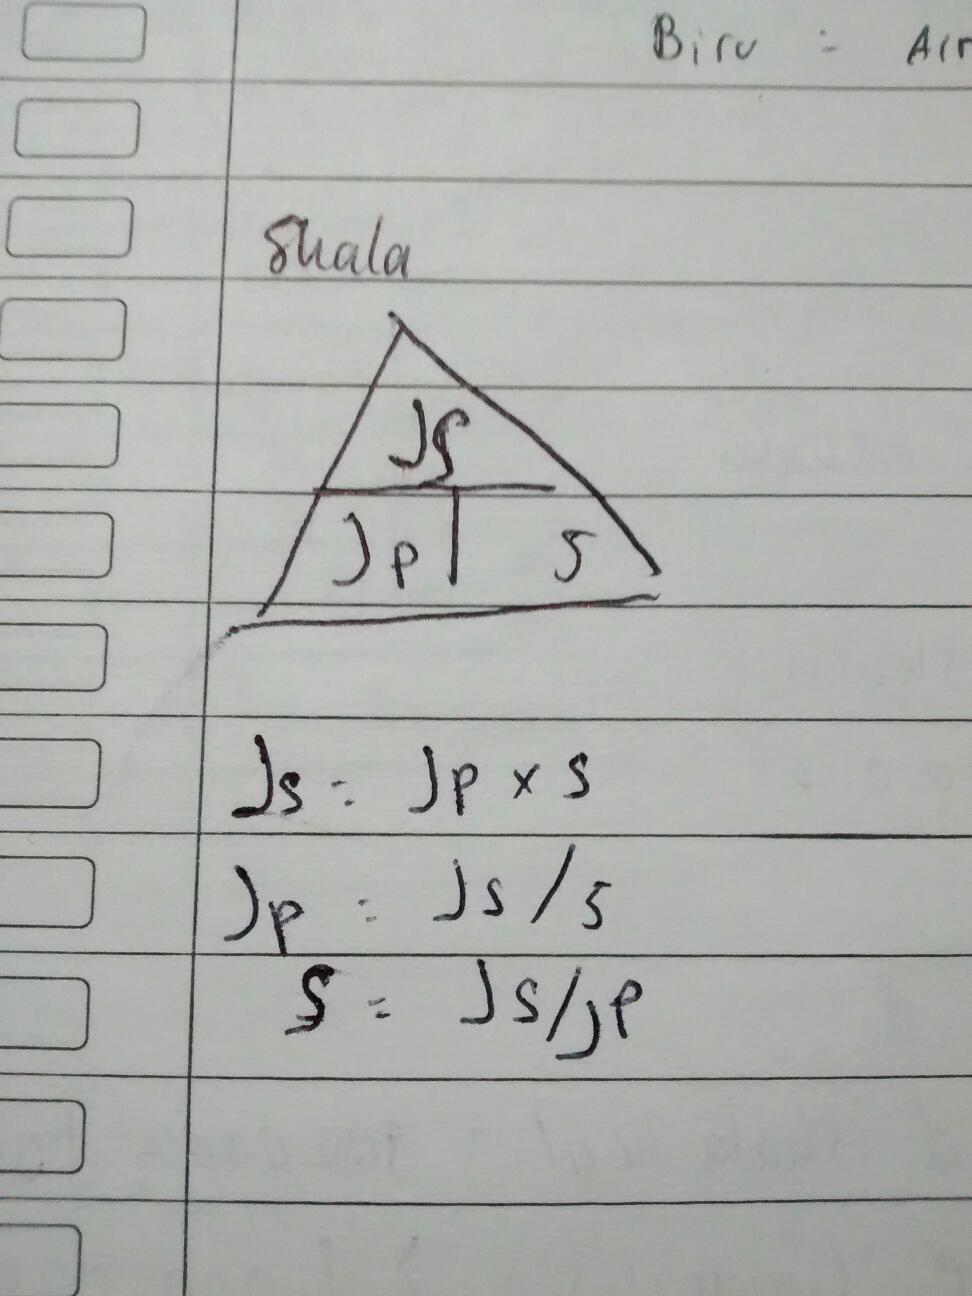 Biru = Air
Skala
Js
Jp s
Js = Jp x s
Jp = Js / s
S = Js/Jp